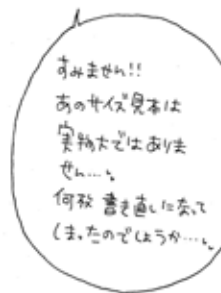 すみません!!
あのサイズ見本は
実物大ではありま
せん…。
何故 書き直いになって
しまったのでしょうか…。